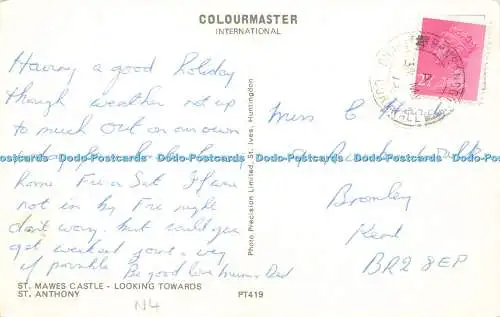 COLOURMASTER
INTERNATIONAL
Having a good holiday
though weather not up
to much Out on our own
today
Home Fri or Sat If we are
not in by Fri night
don't worry. but could you
get weekend joint & veg
if possible Be good love Mum & Dad
ST. MAWES CASTLE - LOOKING TOWARDS
ST. ANTHONY
PT419
N4
Photo Precision Limited, St. Ives, Huntingdon
Miss C
Bromley
Kent
BR2 8EP
Dodo-Postcards Dodo-Postcards Dodo-Postcards Dodo-Postcards Dodo-Postcards Dodo-Postcards